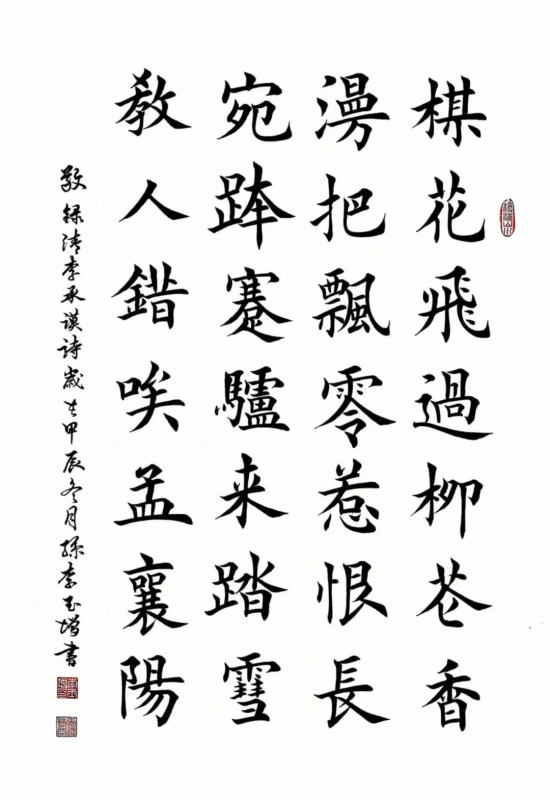 楳花飛過柳芲香
漫把飄零惹恨長
宛跨蹇驢来踏雪
敎人錯唤孟襄陽
敬録清李承謨詩歲在甲辰冬月孫李玉增書